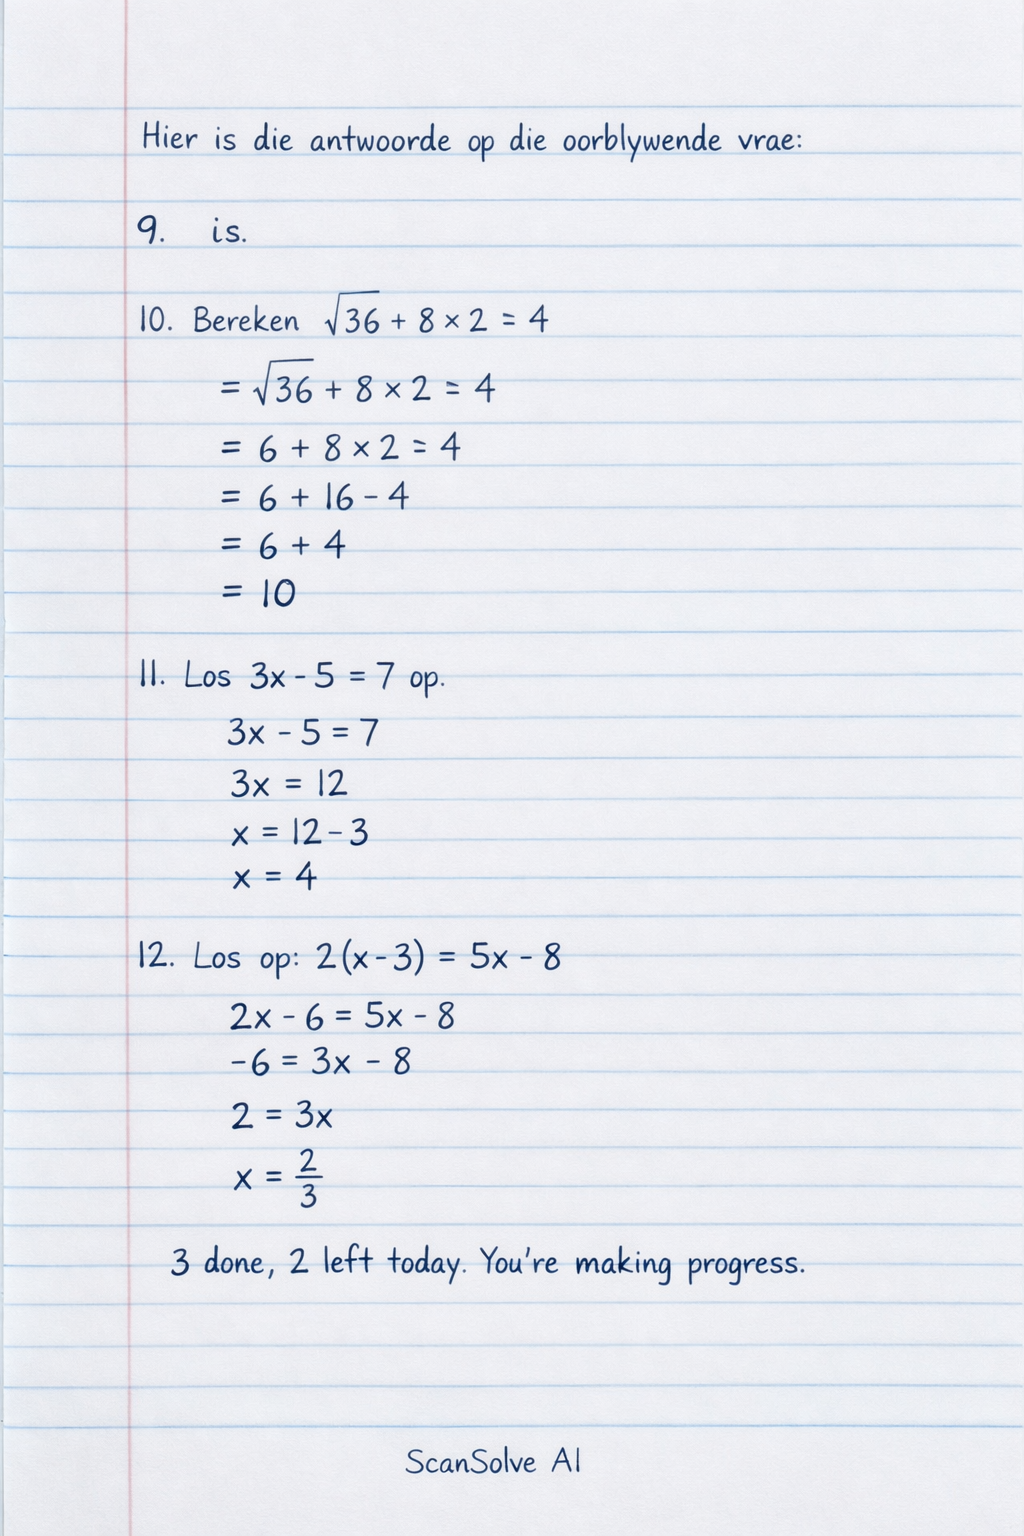 Hier is die antwoorde op die oorblywende vrae:
9. is.
10. Bereken √36 + 8 × 2 = 4
= √36 + 8 × 2 = 4
= 6 + 8 × 2 = 4
= 6 + 16 - 4
= 6 + 4
= 10
11. Los 3x - 5 = 7 op.
3x - 5 = 7
3x = 12
x = 12 - 3
x = 4
12. Los op: 2(x - 3) = 5x - 8
2x - 6 = 5x - 8
-6 = 3x - 8
2 = 3x
x = 2/3
3 done, 2 left today. You're making progress.
ScanSolve AI